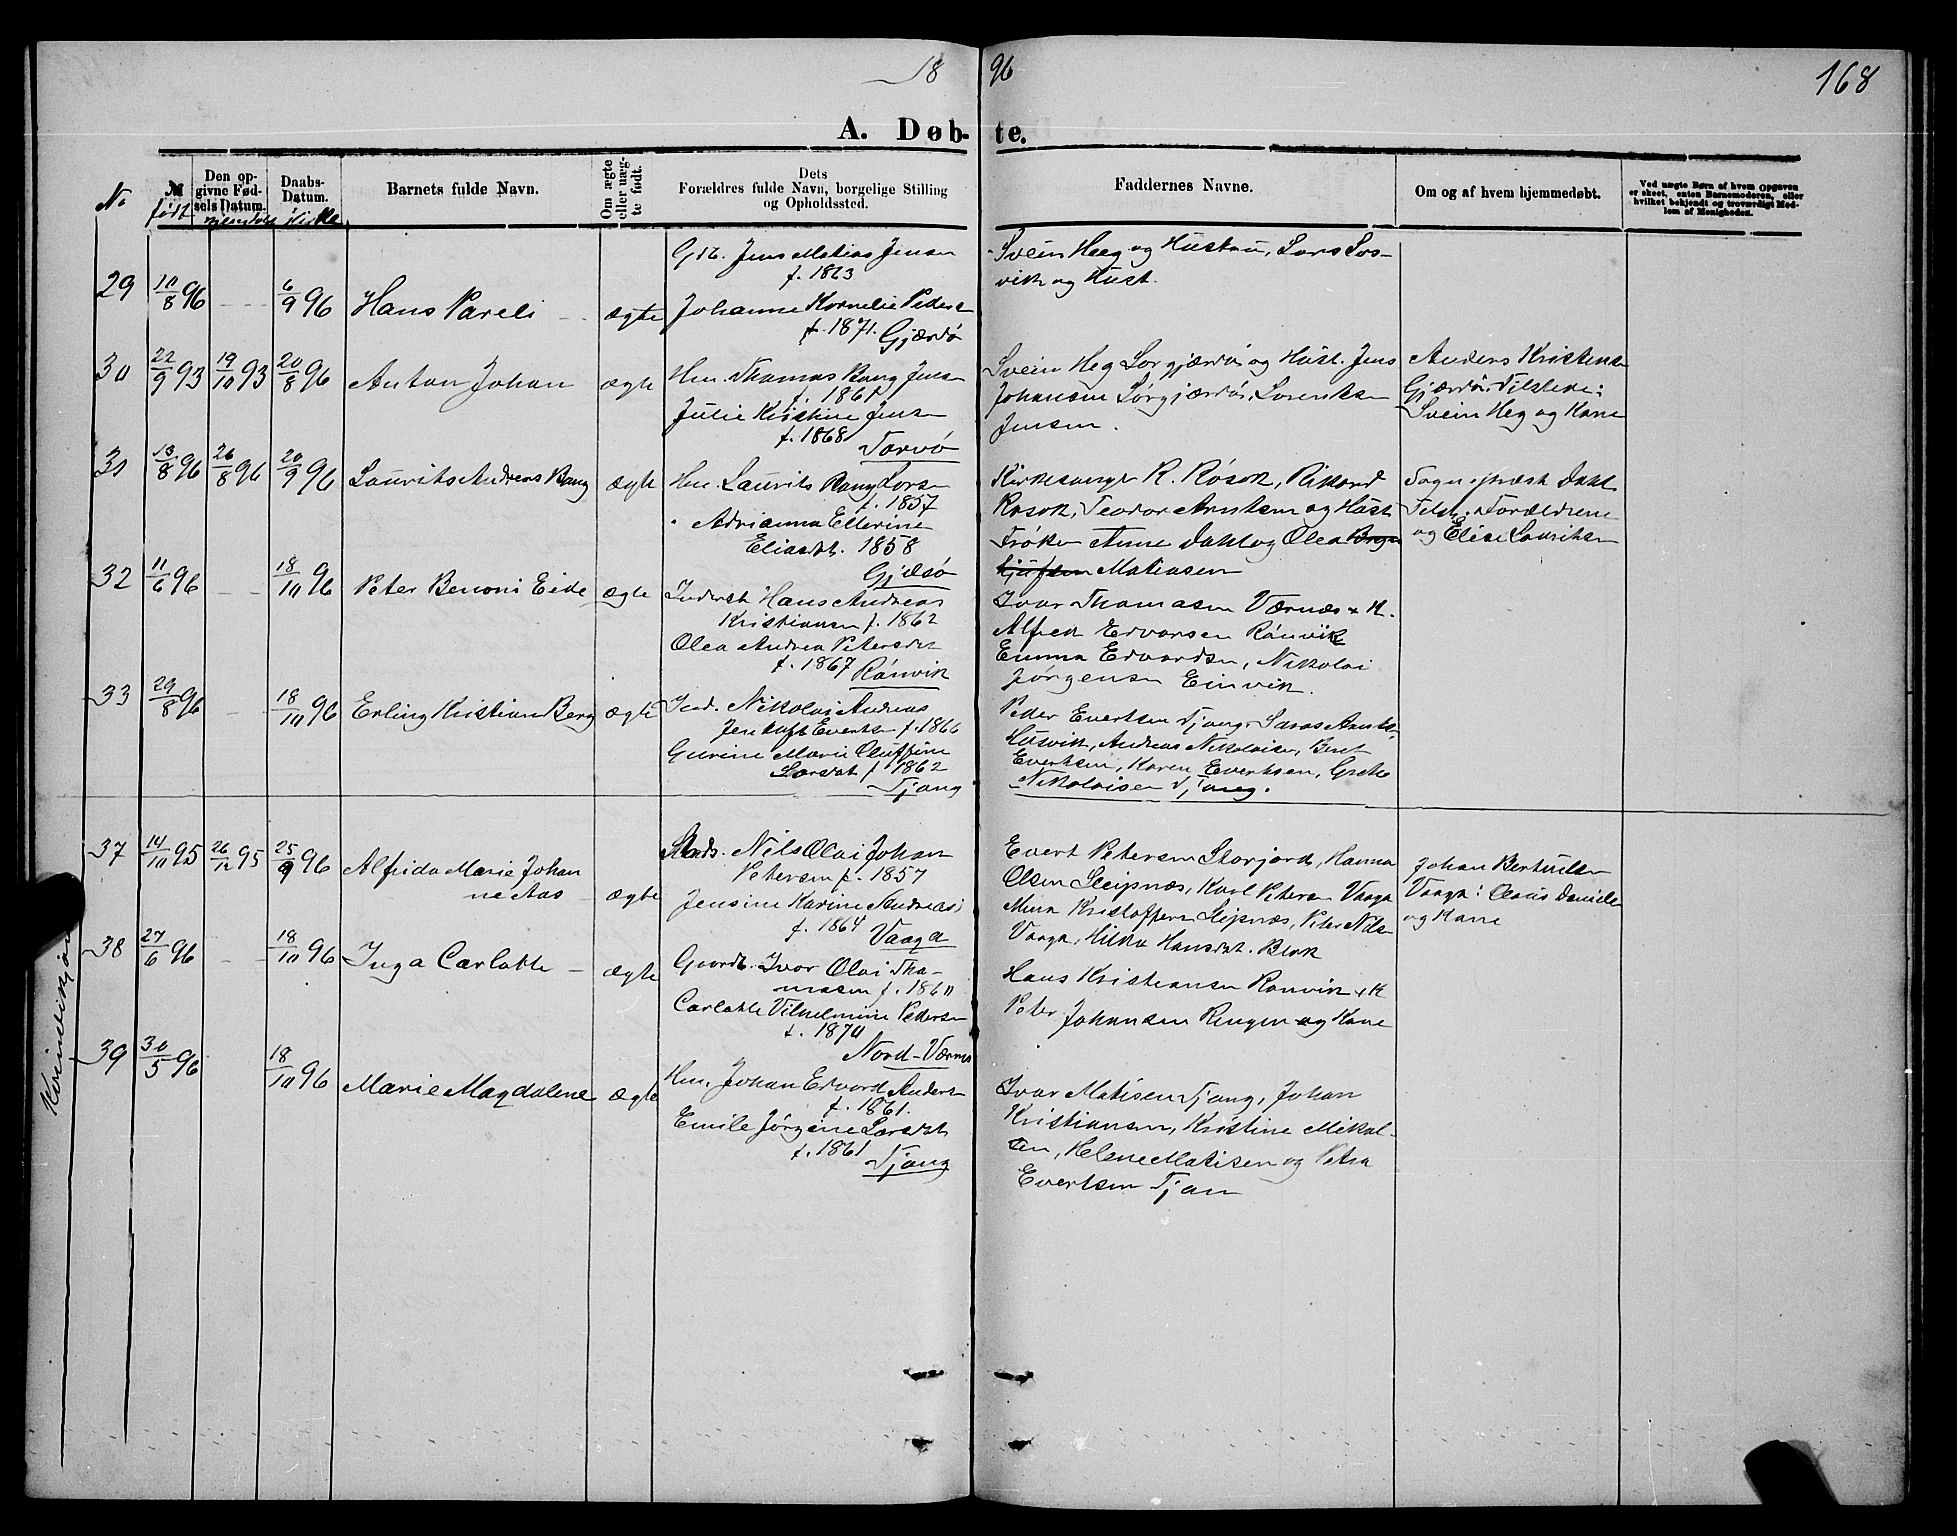 18 96
168
A. Døb- te.
No
№ født
Den opgivne Fødsels Datum.
Daabs-Datum.
Kirke
Barnets fulde Navn.
Om ægte eller uægte født.
Dets Forældres fulde Navn, borgelige Stilling og Opholdssted.
Faddernes Navne.
Om og af hvem hjemmedøbt.
Ved uægte Børn af hvem Opgaven er skeet, enten Barnemoderen, eller hvilket bekjendt og troværdigt Medlem af Menigheden.
29 10/8 96 6/9 96 Hans Pareli ægte
Jens Matias Jensen
f. 1863
Johanne Kornelie Peders
f. 1871. Gjærdø
Svein Heg og Hustru, Lars Sos-
vik og Hust.
30 22/9 93 19/10 93 20/8 96 Anton Johan ægte
Hm. Thomas Bang Jens
f. 1861
Julie Kristine Jens
f. 1868
Tarvø
Svein Heg Sørgjærdø og Hust. Jens
Johansen Sørgjærdø, Lorents
Jensen.
Anders Kristens
Gjærdø. Tilstede:
Svein Heg og Kone
31 13/8 96 26/8 96 20/9 96 Laurits Andreas Bang ægte
Hm. Laurits Bang Lors
f. 1857
Adrianna Ellerine
Eliasdt. 1858
Gjæsø
Kirkesanger R. Røsok, Rikard
Røsok, Teodor Arntsen og Hust
Frøken Anne Dahl og Olea
Matiasen
Sogneprest Dahl
Tilst. Forældrene
og Elise Lauritsen
32 11/6 96 18/10 96 Peter Benoni Eide ægte
Inderst Hans Andreas
Kristiansen f. 1862
Olea Andrea Petersdt
f. 1867 Rønvik
Ivar Thomasen Værnes + K.
Alfred Edvarsen Rønvik
Emma Edvardsen, Nikolai
Jørgensen Einvik.
33 29/8 96 18/10 96 Erling Kristian Berg ægte
Ind. Nikolai Andreas
Jentoft Everts f. 1866
Gurine Marie Oluffine
Larsdt f. 1862
Tjong
Peder Evertsen Tjong,
Husvik, Andreas Nikolaisen, Berit
Evertsen, Karen Evertsen, Grete
Nikolaisen Tjong.
Kvindekjøn
37 14/10 95 26/12 95 25/9 96 Alfrida Marie Johan
ne Aas ægte
Nils Olai Johan
Petersen f. 1857
Jensine Karine Andreas
f. 1864 Vaaga
Evert Petersen Storjord, Hanna
Olsen Sleipnæs, Karl Peters Vaaga
Mina Kristoffers Sleipnæs, Peter Nils
Vaaga, Hilka Hansdt. Berk
Johan Bertheusen
Vaaga: Olaus Daniels
og Kone
38 27/6 96 18/10 96 Inga Carlotte ægte
Gaardb. Ivar Olai Tho-
masen f. 1860
Carlotte Vilhelmine Peders
f. 1870
Nord-Værnes
Hans Kristiansen Rønvik + K
Peter Johansen Ringen og Kone
39 30/5 96 18/10 96 Marie Magdalene ægte
Hm. Johan Edvard Anders
f. 1861.
Emile Jørgine Larsdt
f. 1861
Tjong
Ivar Matisen Tjong, Johan
Kristiansen, Kristine Mikal-
sen, Helene Matisen og Petra
Evertsen Tjon